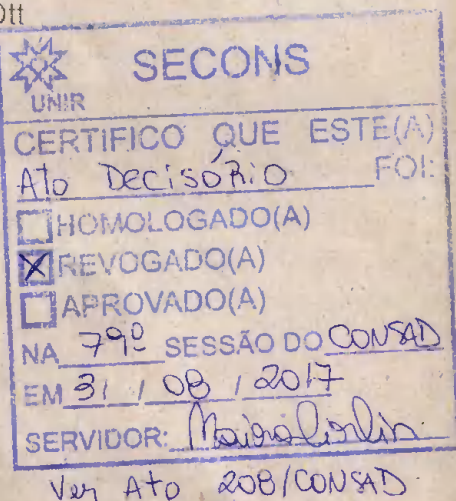 Ott
SECONS
UNIR
CERTIFICO QUE ESTE(A)
Ato Decisório FOI:
HOMOLOGADO(A)
X REVOGADO(A)
APROVADO(A)
NA 79º SESSÃO DO CONSAD
EM 31 / 08 / 2017
SERVIDOR:
Ver Ato 208/CONSAD